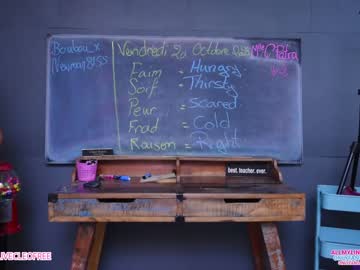 Boubou_x
Newman8155
Vendredi 24 Octobre
Mlle C Petra
Faim = Hungry
Soif = Thirsty
Peur = Scared
Froid = Cold
Raison = Right
best. teacher. ever.
LIVECLEOFREE